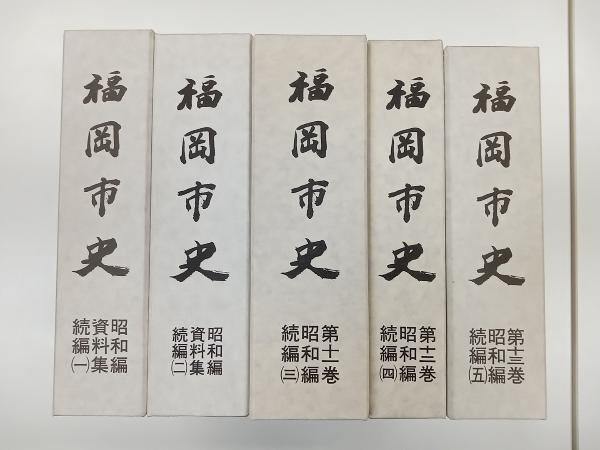 福岡市史
昭和編
資料集
続編(一)
福岡市史
昭和編
資料集
続編(二)
福岡市史
第十一巻
昭和編
続編(三)
福岡市史
第十二巻
昭和編
続編(四)
福岡市史
第十三巻
昭和編
続編(五)